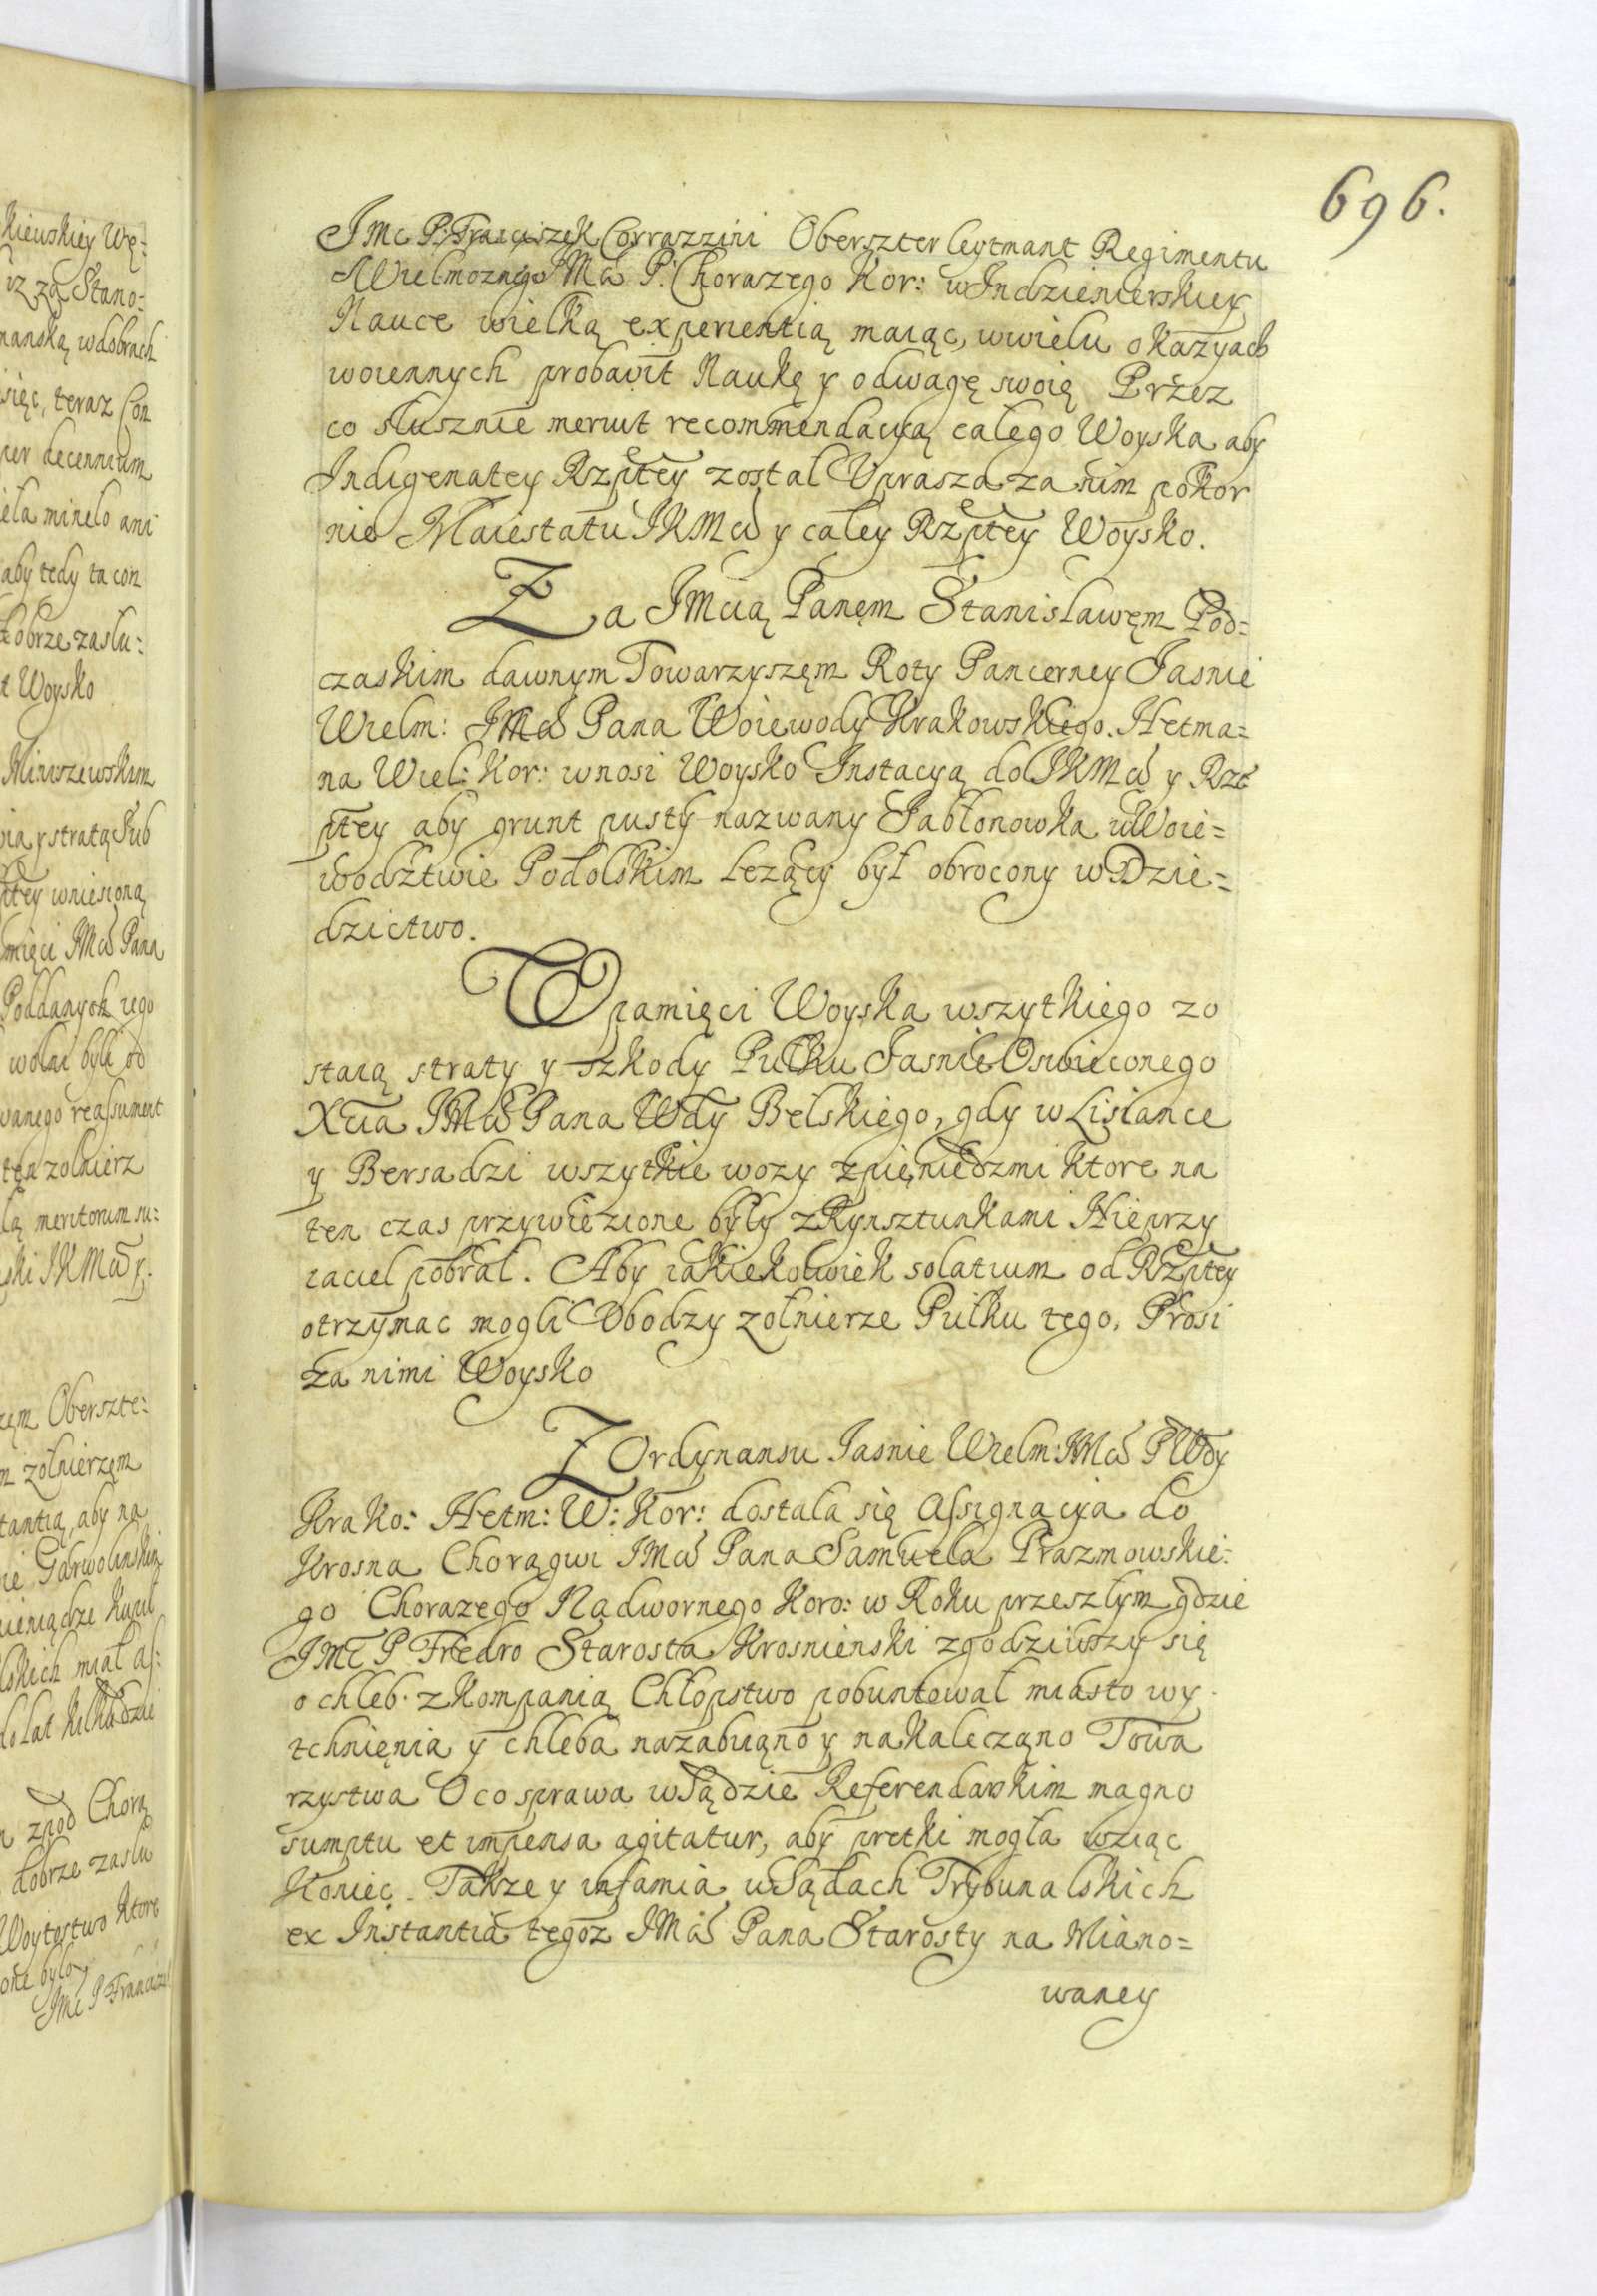 kiewskiey Wę:
iz za Stano:
manską w dobrach
sięc, teraz Con
per decennium
minelo ani
aby tedy ta con
dobrze zaslu:
t Woysko
Miniszewskim
y stratą Sub
ptey wniesioną
mięci JMći Pana
Poddanych iego
wolni byli od
wanego reassument
ten zolnierz
lą meritorum su:
ski JKMći y.
Oberszte:
m zolnierzęm
tantią, aby na
Garwolinskim
ieniądze kupił
lskich miał as:
do Lat kilkudzie
zpod Chorą
dobrze zaslu
Woytostwo ktore
one było
JMć P Francisze
696.
JMć P. Franciszek Corrazzini Oberszter leytmant Regimentu
Wielmoznego JMći P. Chorazego Kor: w Indzienierskiey
Nauce wielką experientią maiąc, w wielu okazyach
woiennych probavit Naukę y odwagę swoię Przez
co słusznie meruit recommendacyą calego Woyska aby
Indigenatey Rzptey został Uprasza za nim pokor
nie Maiestatu JKMći y całey Rzptey Woysko.
Za JMcią Panęm Stanisławęm Pod=
czaskim dawnym Towarzyszęm Roty Pancerney Jasnie
Wielm: JMći Pana Woiewody Krakowskiego. Hetma=
na Wiel: Kor: wnosi Woysko Instacyą do JKMći y Rze
ptey aby grunt pusty nazwany Jabłonowka w Woie=
wodztwie Podolskim lezący był obrocony w Dzie=
dzictwo.
W pamięci Woyska wszytkiego zo
staią straty y szkody Pułku Jasnie Oswieconego
Xcia JMći Pana Wdy Bełskiego, gdy w Lisiance
y Bersadzi wszytkie wozy z pięniedzmi ktore na
ten czas przywiezione były z Rynsztunkami Nieprzy
iaciel pobrał. Aby iakiekolwiek solatium od Rzptey
otrzymac mogli Vbodzy zołnierze Pułku tego, Prosi
za nimi Woysko
Z Ordynansu Jasnie Wielm: JMći P Wdy
Krako: Hetm: W: Kor: dostała się Assignacya do
Krosna Chorągwi JMći Pana Samuela Prazmowskie:
go Chorazego Nadwornego Koro: w Roku przeszłym gdzie
JMć P Fredro Starosta Krosnienski zgodziwszy się
o chleb z kompanią Chłopstwo pobuntował miasto wy
tchnięnia y chleba nazabiąno y nakalecząno Towa
rzystwa O co sprawa w Sądzie Referendarskim magno
sumptu et impensa agitatur, aby prętki mogła wziąc
Koniec. Takze y infamia w Sądach Trybunalskich
ex Instantia tegoz JMći Pana Starosty na Miano=
waney